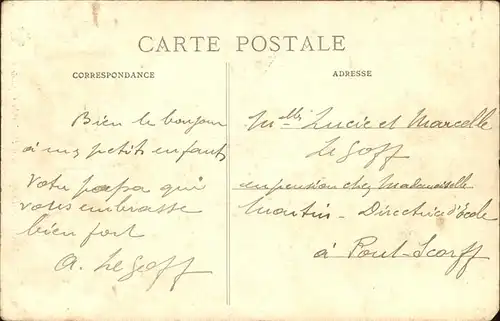 CARTE POSTALE
CORRESPONDANCE
Bien le bonjour
à mes petits enfants
Votre papa qui
vous embrasse
bien fort
A. Le Goff
ADRESSE
Melles Lucie et Marcelle
Le Goff
en pension chez Mademoiselle
Martin - Directrice d'école
à Pont-Scorff